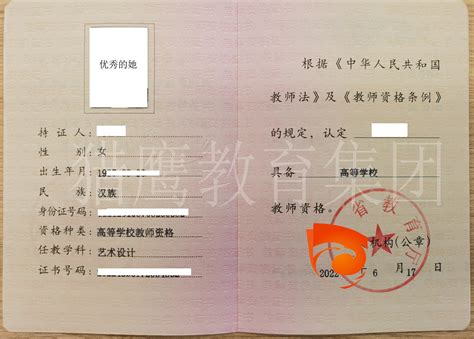 优秀的她
持证人：
性别：女
出生年月：19
民族：汉族
身份证号码：
资格种类：高等学校教师资格
任教学科：艺术设计
证书号码：
根据《中华人民共和国
教师法》及《教师资格条例》
的规定，认定
具备 高等学校
教师资格。
省教育厅
机构(公章)
2022 6月17日
鹰教育集团